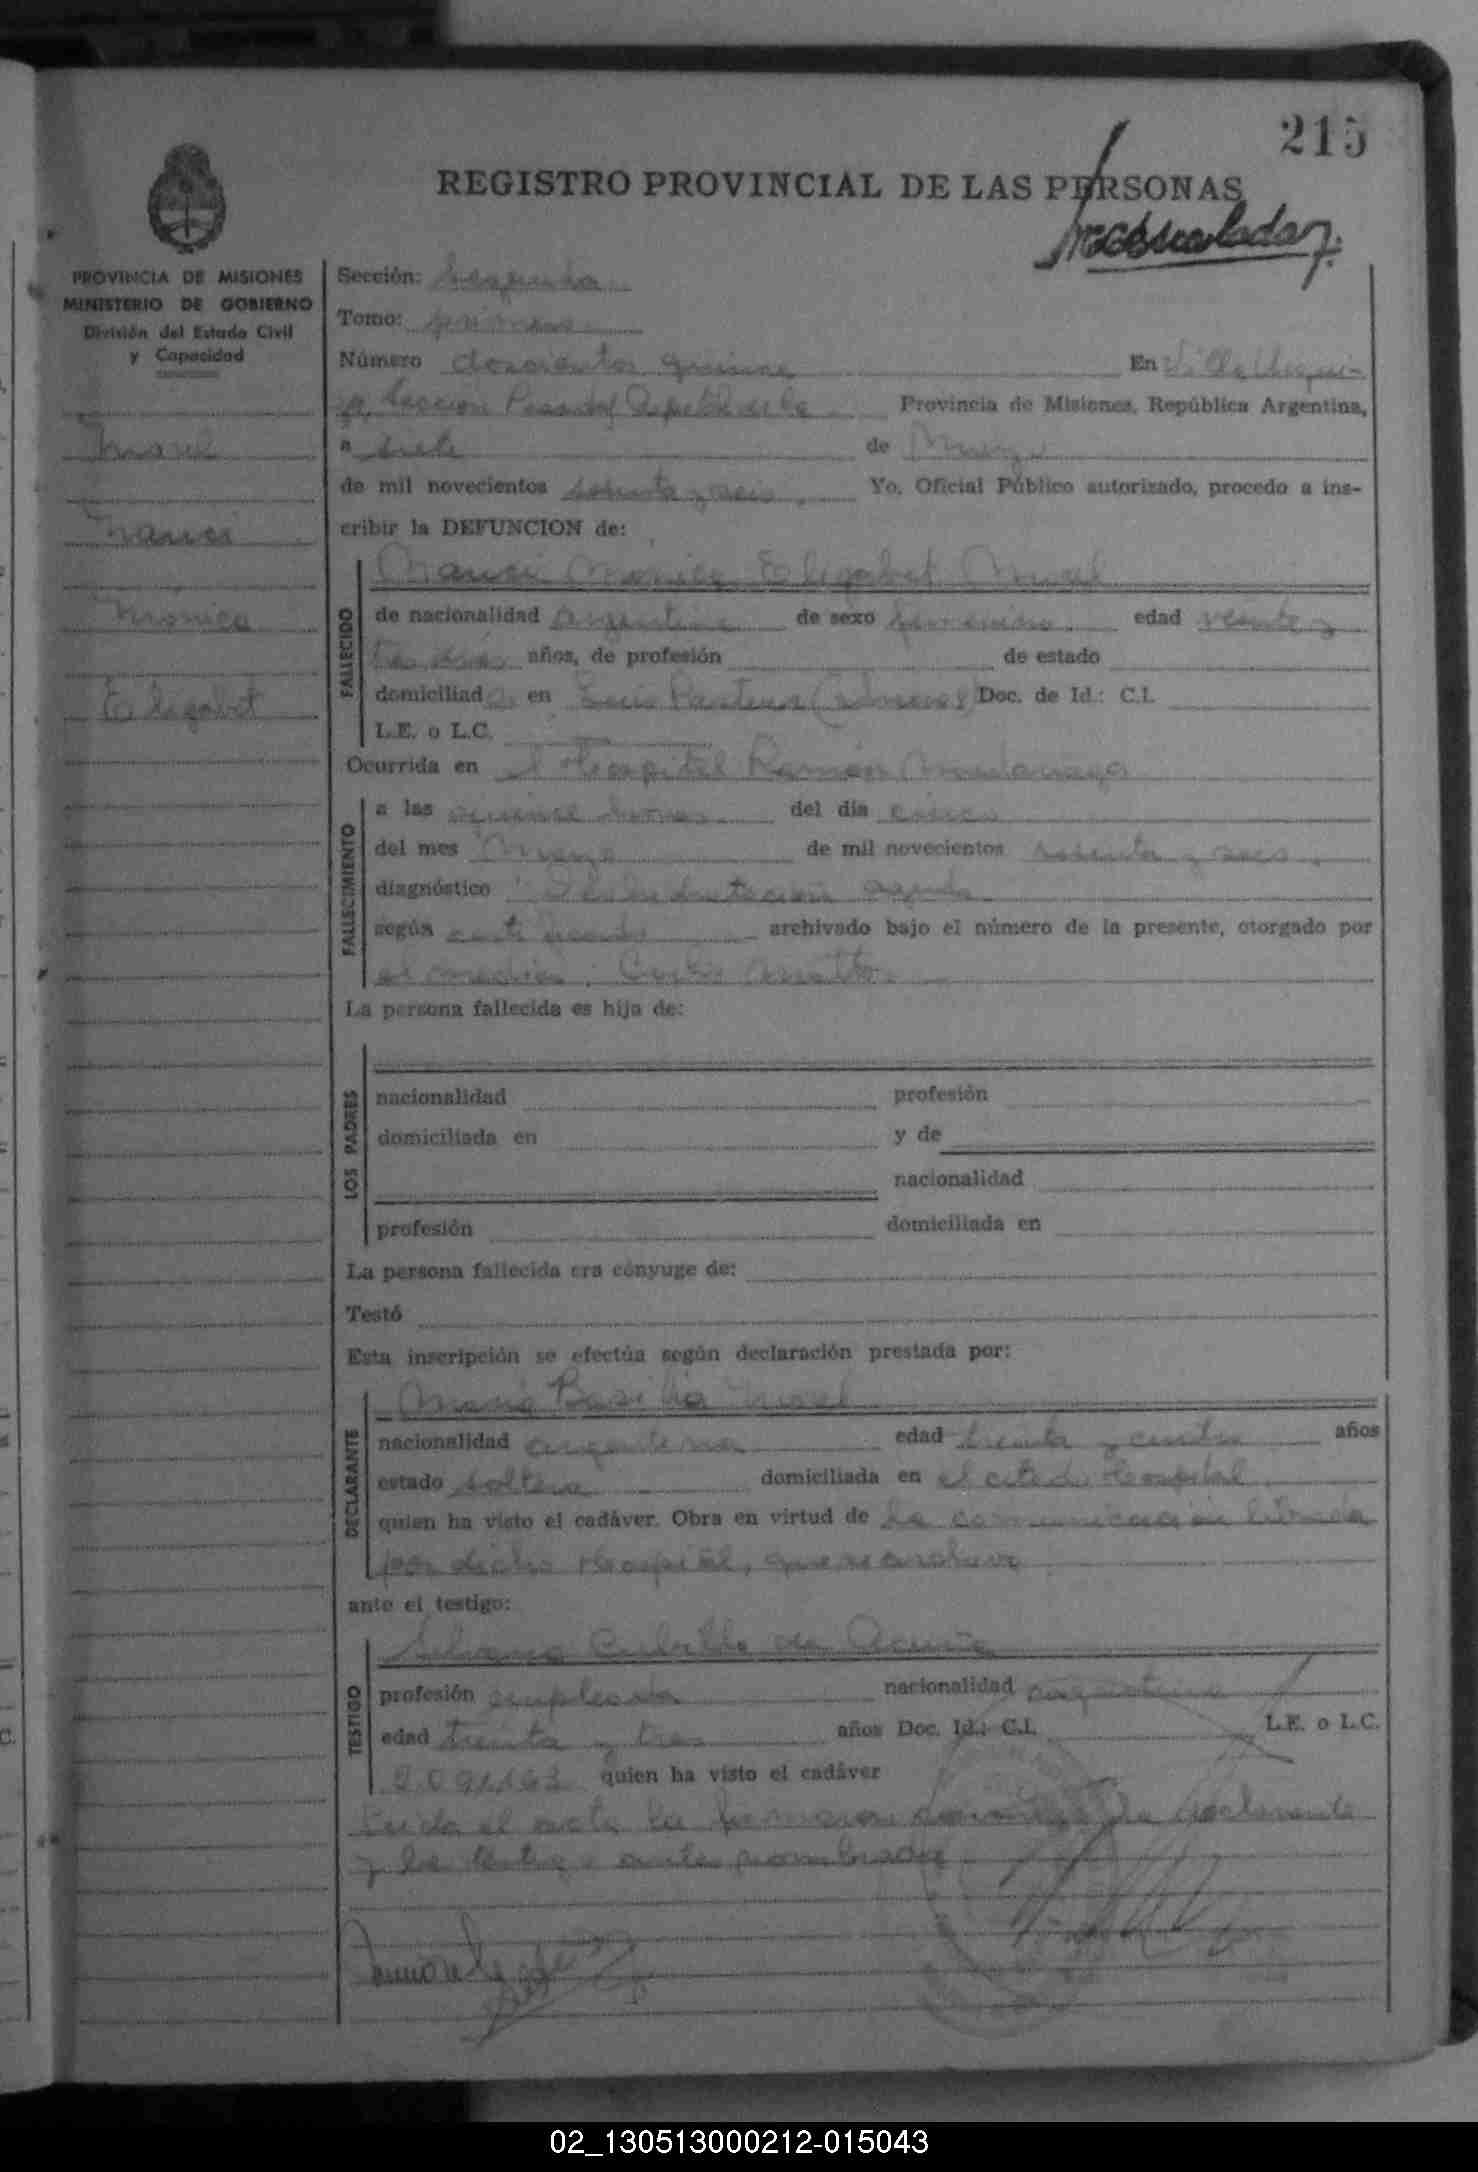 215
REGISTRO PROVINCIAL DE LAS PERSONAS
PROVINCIA DE MISIONES
MINISTERIO DE GOBIERNO
División del Estado Civil
y Capacidad
Morel
Nanci
Mónica
Elizabet
Sección: Segunda
Tomo: primero
Número doscientos quince En Villa Urqui-
za, Sección Provincia de Misiones, República Argentina,
a siete de Marzo
de mil novecientos setenta y seis. Yo, Oficial Público autorizado, procedo a ins-
cribir la DEFUNCION de:
FALLECIDO
Nanci Mónica Elizabet Morel
de nacionalidad argentina de sexo femenino edad veinte y
tres días años, de profesión de estado
domiciliada en Luis Pasteur Doc. de Id.: C.I.
L.E. o L.C.
Ocurrida en el Hospital Ramón Madariaga
FALLECIMIENTO
a las quince horas del día cinco
del mes Marzo de mil novecientos setenta y seis.
diagnóstico Deshidratación aguda
según certificado archivado bajo el número de la presente, otorgado por
el médico
La persona fallecida es hija de:
LOS PADRES
nacionalidad profesión
domiciliada en y de
nacionalidad
profesión domiciliada en
La persona fallecida era cónyuge de:
Testó
Esta inscripción se efectúa según declaración prestada por:
DECLARANTE
María Basilia Morel
nacionalidad argentina edad treinta y cuatro años
estado soltera domiciliada en el citado Hospital
quien ha visto el cadáver. Obra en virtud de la comunicación librada
por dicho Hospital, que se archiva
ante el testigo:
TESTIGO
Silvana Cubilla de Acuña
profesión empleada nacionalidad argentina
edad treinta y tres años Doc. Id.: C.I. L.E. o L.C.
quien ha visto el cadáver
Leída el acta la firman conmigo la declarante
y la testigo antes nombrada
02_130513000212-015043